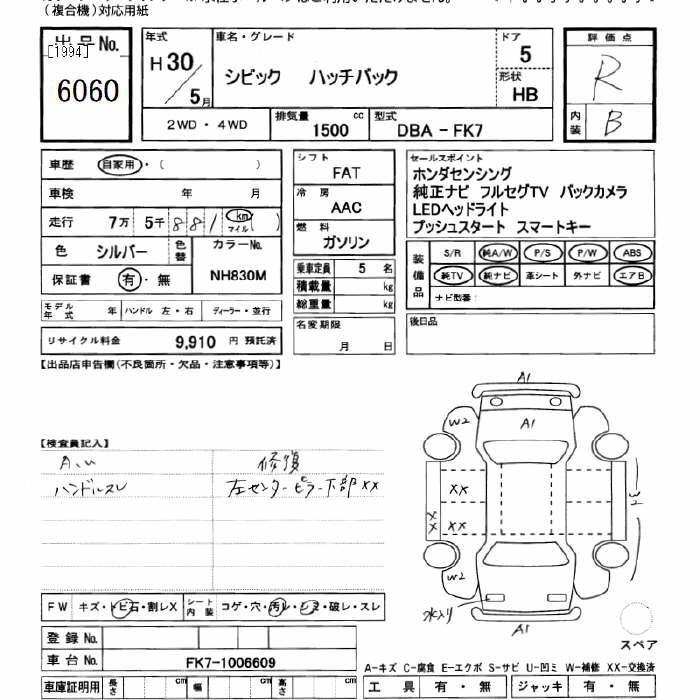 （複合機）対応用紙
出品No.
[1994]
6060
年式
H30/5月
車名・グレード
シビック ハッチバック
ドア
5
形状
HB
評価点
R
内装
B
2WD・4WD
排気量
1500 cc
型式
DBA－FK7
車歴
自家用・（ ）
車検 年 月
走行 7万 5千 881 km
マイル
色 シルバー
色替
カラーNo.
NH830M
保証書 有・無
モデル年式 年
ハンドル 左・右
ディーラー・並行
リサイクル料金 9,910 円 預託済
シフト
FAT
冷房
AAC
燃料
ガソリン
乗車定員 5 名
積載量 kg
総重量 kg
名変期限
月 日
セールスポイント
ホンダセンシング
純正ナビ フルセグTV バックカメラ
LEDヘッドライト
プッシュスタート スマートキー
装備品
S/R 純A/W P/S P/W ABS
純TV 純ナビ 革シート 外ナビ エアB
ナビ型番：
後日品
【出品店申告欄(不良箇所・欠品・注意事項等)】
【検査員記入】
A.W 修復
ハンドルスレ 左センターピラー下部XX
A1
A1
W2
XX
XX
XX
W2
W2
水入り
A1
スペア
FW キズ・トビ石・割レX
シート内装 コゲ・穴・汚レ・シミ・破レ・スレ
登録No.
車台No. FK7-1006609
車庫証明用 長さ cm 幅 cm 高さ cm
A-キズ C-腐食 E-エクボ S-サビ U-凹ミ W-補修 XX-交換済
工具 有・無 ジャッキ 有・無